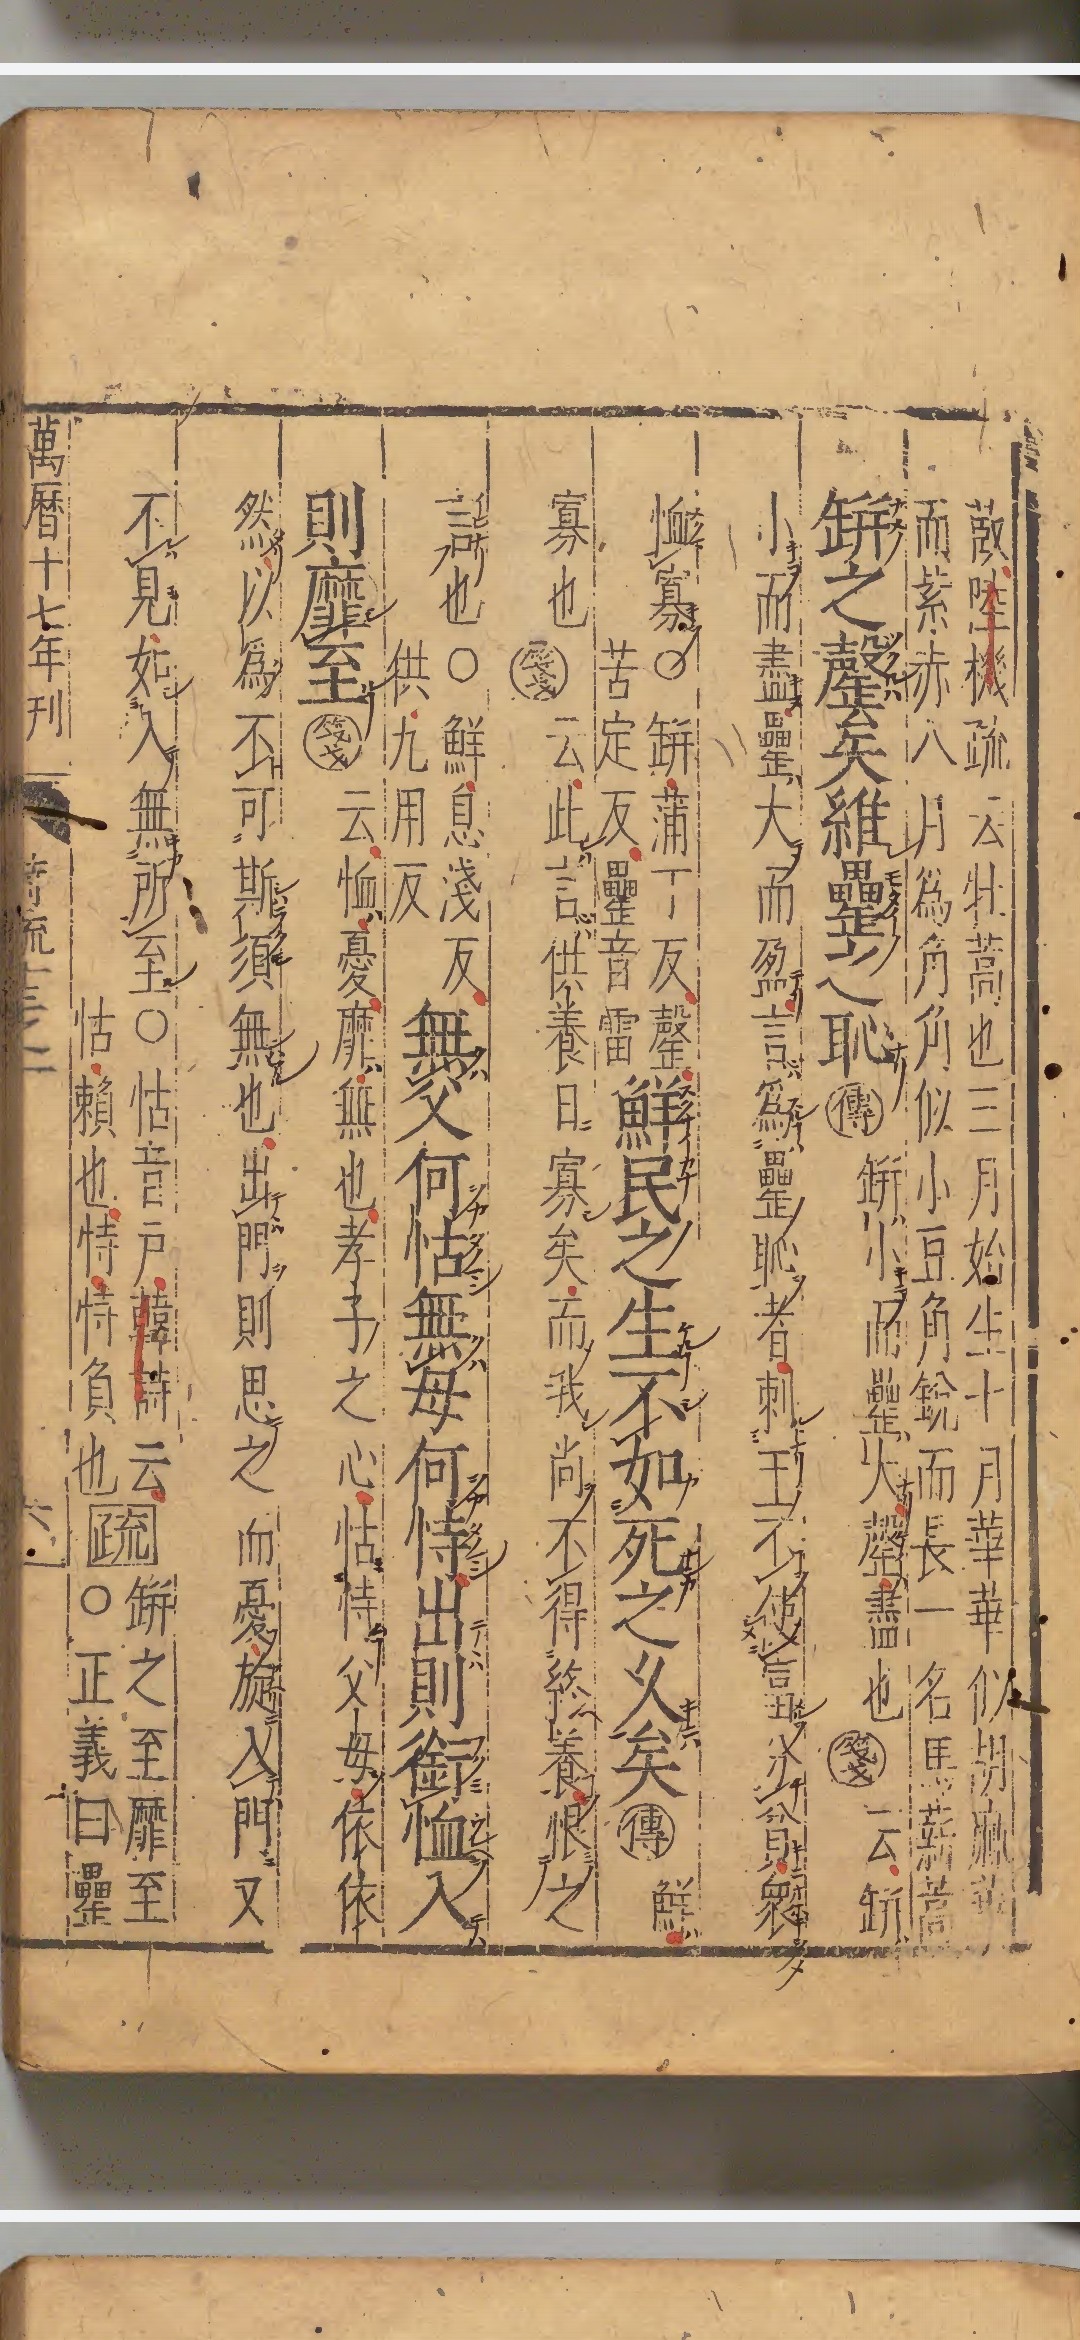 蔚陸機疏云牡蒿也三月始生十月華華似胡麻華
而紫赤八月爲角角似小豆角銳而長一名馬薪蒿
缾之罄矣維罍之恥傳缾小而罍大罄盡也箋云缾
小而盡罍大而盈言爲罍恥者刺王不使富分貧衆
恤寡○缾蒲丁反罄
苦定反罍音雷
鮮民之生不如死之乆矣傳鮮
寡也箋云此言供養日寡矣而我尚不得終養恨之
言也○鮮息淺反
供九用反
無父何怙無母何恃出則銜恤入
則靡至箋云恤憂靡無也孝子之心怙恃父母依依
然以爲不可斯須無也出門則思之而憂旋入門又
不見如入無所至○怙音户韓詩云
怙賴也恃恃負也
疏
缾之至靡至
○正義曰罍
萬曆十七年刊
六